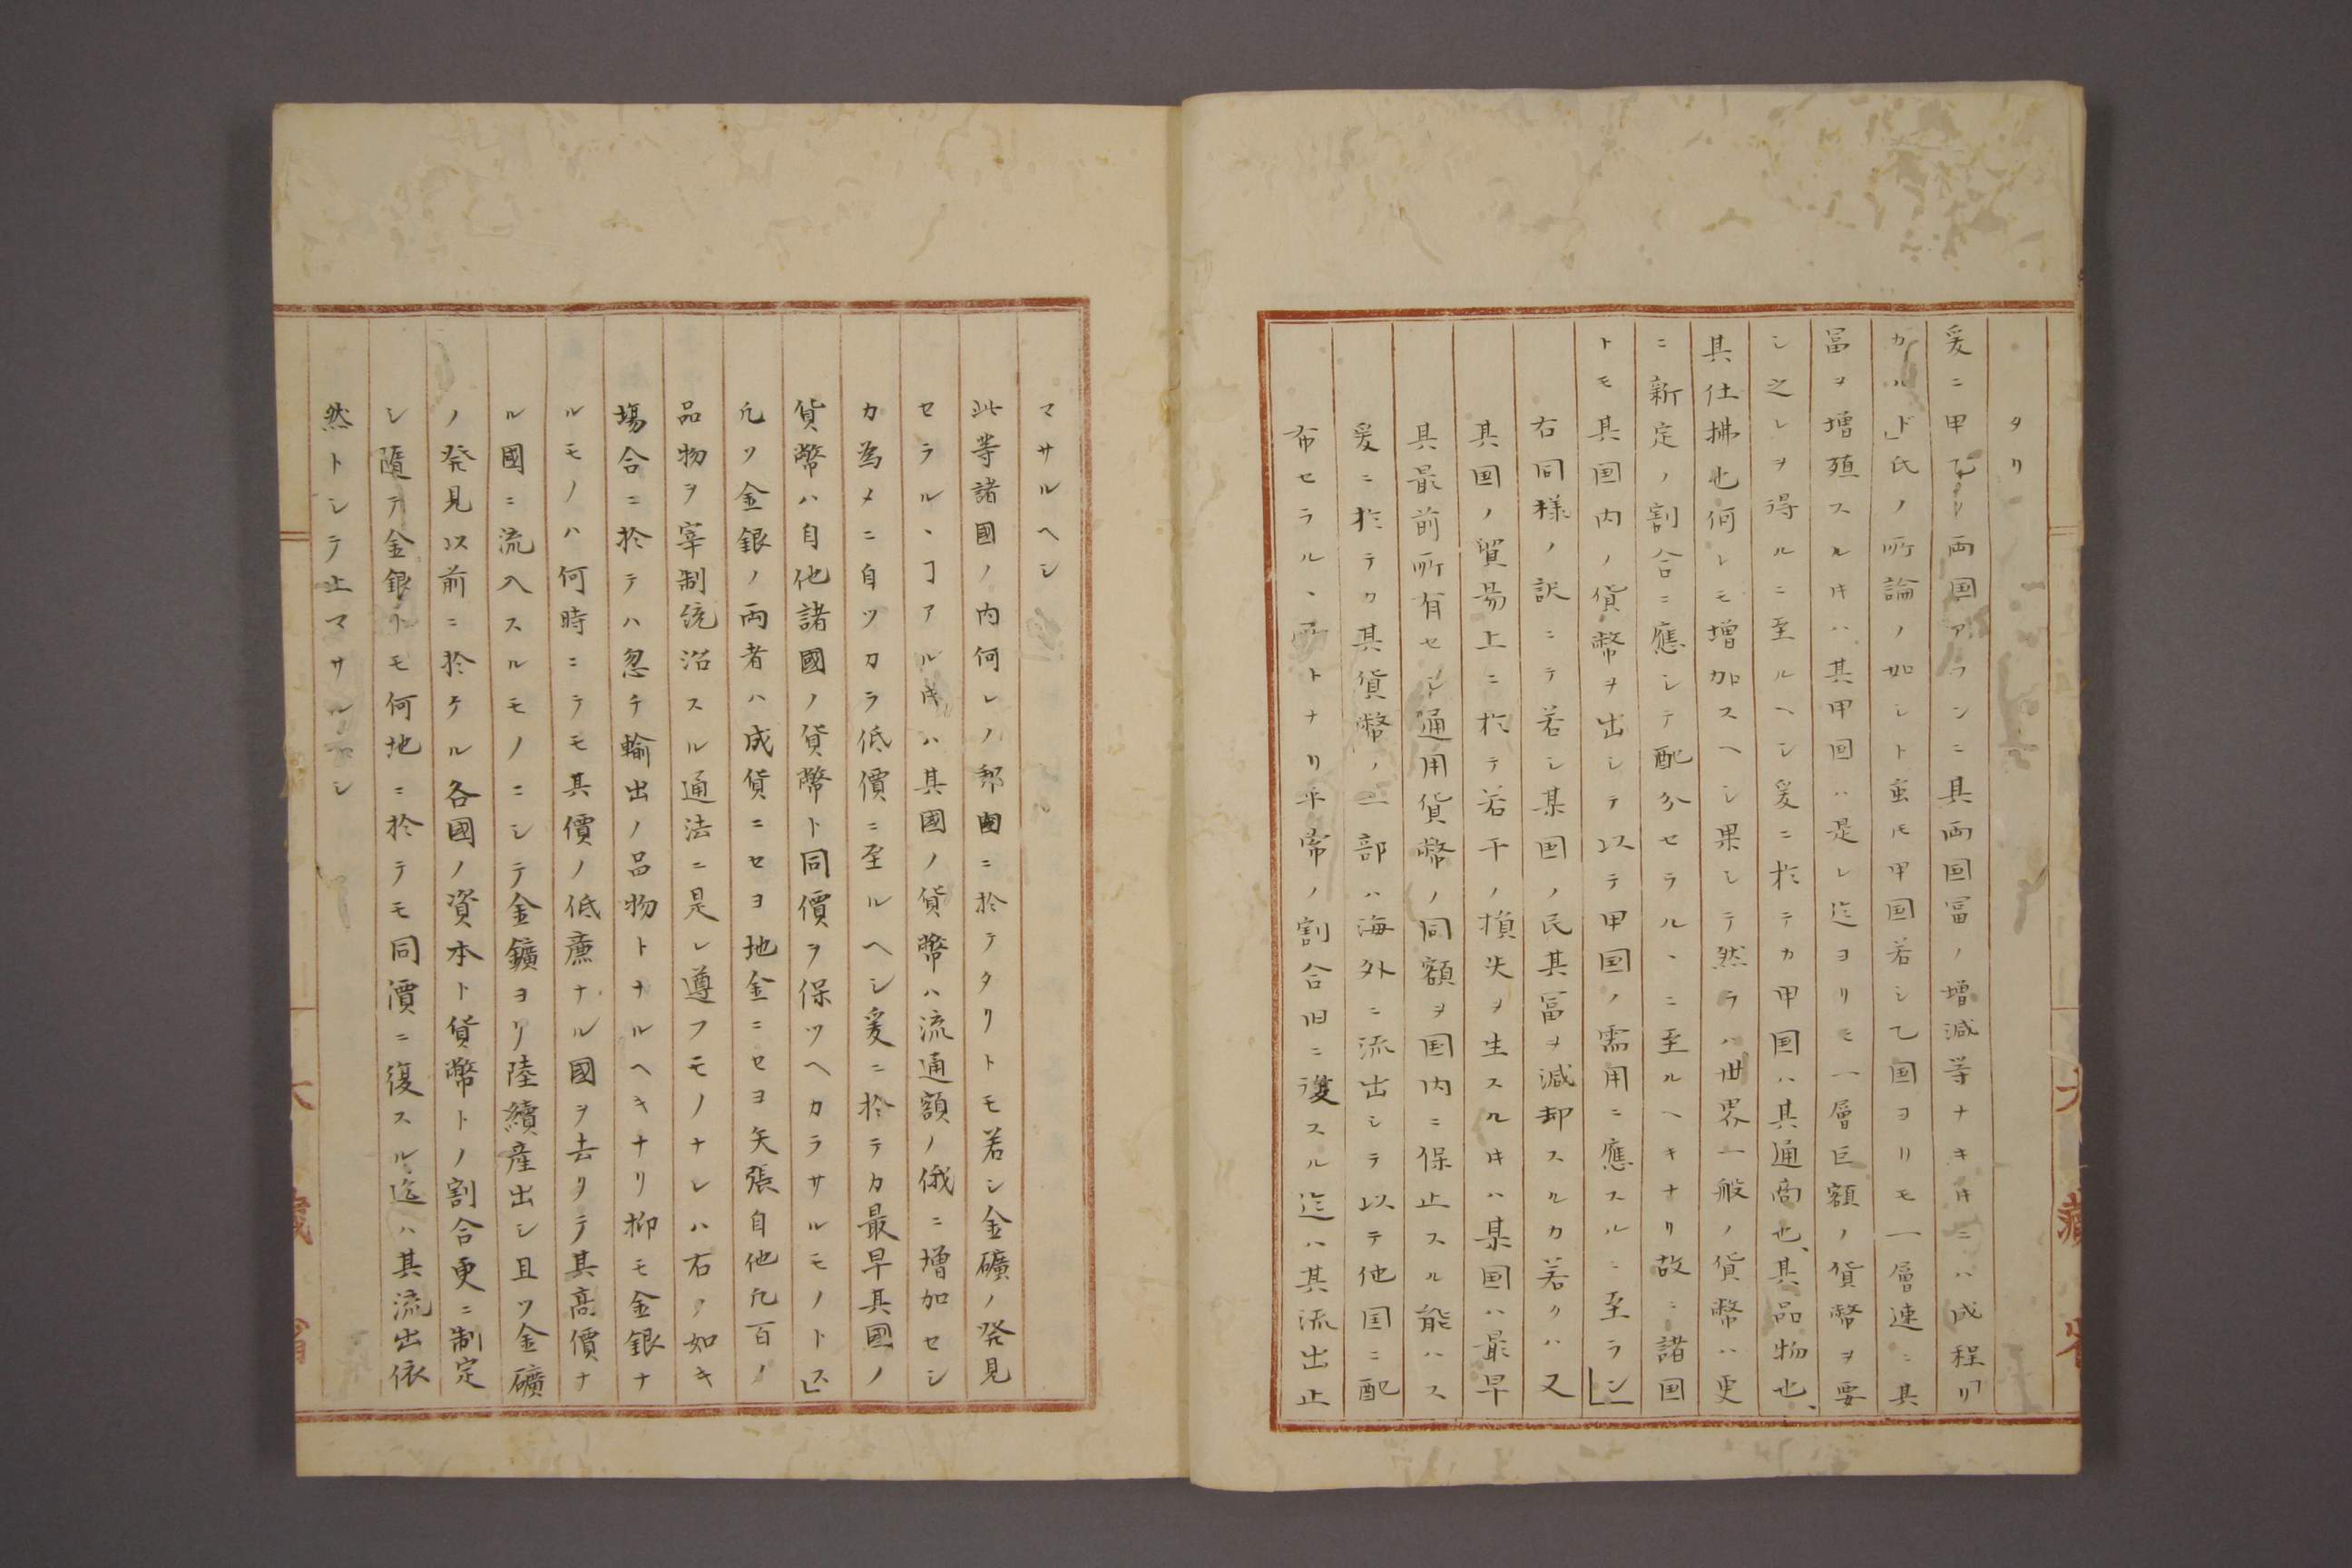 タリ
爰ニ甲乙ノ両国アランニ其両国冨ノ増減等ナキ𪜈ニハ成程「リ
カルド」氏ノ所論ノ如シト虽𪜈甲国若シ乙国ヨリモ一層速ニ其
冨ヲ増殖スル𪜈ハ其甲国ハ是レ迄ヨリモ一層巨額ノ貨幣ヲ要
シ之レヲ得ルニ至ルヘシ爰ニ於テカ甲国ハ其通商也、其品物也、
其仕拂也何レモ増加スヘシ果シテ然ラハ世界一般ノ貨幣ハ更
ニ新定ノ割合ニ應シテ配分セラルヽニ至ルヘキナリ故ニ諸国
トモ其国内ノ貨幣ヲ出シテ以テ甲国ノ需用ニ應スルニ至ラン」
右同様ノ訳ニテ若シ某国ノ民其冨ヲ減却スルカ若クハ又
其国ノ貿易上ニ於テ若干ノ損失ヲ生スル𪜈ハ某国ハ最早
其最前所有セシ通用貨幣ノ同額ヲ国内ニ保止スル能ハス
爰ニ於テカ其貨幣ノ一部ハ海外ニ流出シテ以テ他国ニ配
布セラルヽ事トナリ平常ノ割合旧ニ復スル迄ハ其流出止
マサルヘシ
此等諸國ノ内何レノ邦國ニ於テタリトモ若シ金礦ノ発見
セラルヽヿアル𪜈ハ其國ノ貨幣ハ流通額ノ俄ニ増加セシ
カ為メニ自ツカラ低價ニ至ルヘシ爰ニ於テカ最早其國ノ
貨幣ハ自他諸國ノ貨幣ト同價ヲ保ツヘカラサルモノトス」
凡ソ金銀ノ両者ハ成貨ニセヨ地金ニセヨ矢張自他凡百ノ
品物ヲ宰制統治スル通法ニ是レ遵フモノナレハ右ノ如キ
塲合ニ於テハ忽チ輸出ノ品物トナルヘキナリ抑モ金銀ナ
ルモノハ何時ニテモ其價ノ低廉ナル國ヲ去リテ其高價ナ
ル國ニ流入スルモノニシテ金鑛ヨリ陸續産出シ且ツ金礦
ノ発見以前ニ於ケル各國ノ資本ト貨幣トノ割合更ニ制定
シ随テ金銀トモ何地ニ於テモ同價ニ復スル迄ハ其流出依
然トシテ止マサルヘシ
大藏省